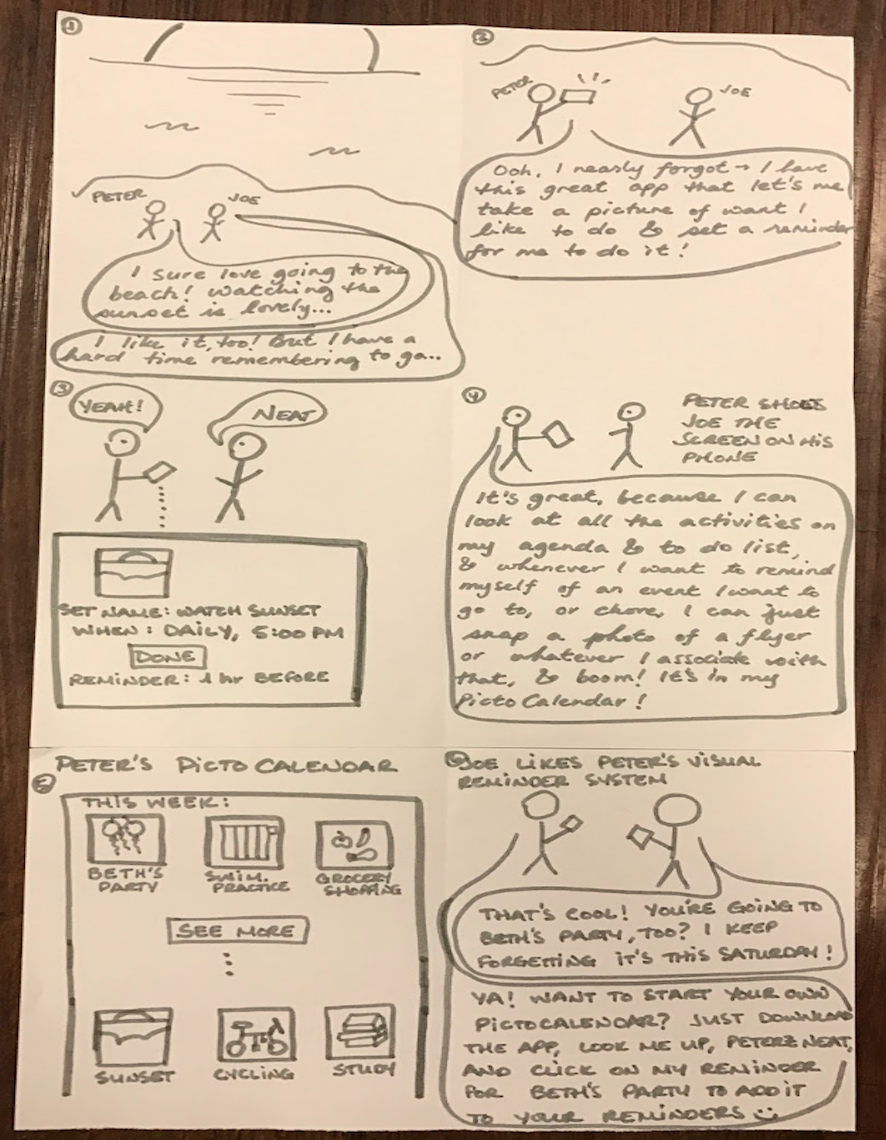 1
PETER
JOE
I sure love going to the
beach! Watching the
sunset is lovely...
I like it, too! But I have a
hard time remembering to go..
2
PETER
JOE
Ooh, I nearly forgot → I have
this great app that let's me
take a picture of want I
like to do & set a reminder
for me to do it!
3
YEAH!
NEAT
SET NAME: WATCH SUNSET
WHEN: DAILY, 5:00 PM
DONE
REMINDER: 1 hr BEFORE
4
PETER SHOES
JOE THE
SCREEN ON HIS
PHONE
It's great, because I can
look at all the activities on
my agenda & to do list,
& whenever I want to remind
myself of an event I want to
go to, or chore, I can just
snap a photo of a flyer
or whatever I associate with
that, & boom! It's in my
Picto Calendar!
5
PETER'S PICTO CALENDAR
THIS WEEK:
BETH'S
PARTY
SWIM.
PRACTICE
GROCERY
SHOPPING
SEE MORE
SUNSET
CYCLING
STUDY
6
JOE LIKES PETER'S VISUAL
REMINDER SYSTEM
THAT'S COOL! YOU'RE GOING TO
BETH'S PARTY, TOO? I KEEP
FORGETTING IT'S THIS SATURDAY!
YA! WANT TO START YOUR OWN
PICTOCALENDAR? JUST DOWNLOAD
THE APP, LOOK ME UP, PETERZNEAT,
AND CLICK ON MY REMINDER
FOR BETH'S PARTY TO ADD IT
TO YOUR REMINDERS